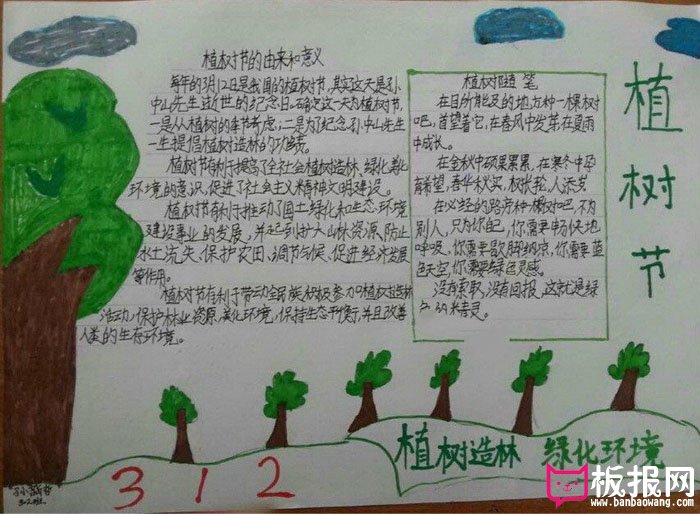 植树节的由来和意义
每年的3月12日是我国的植树节,其实这天是孙
中山先生逝世的纪念日。确定这一天为植树节,
一是从植树的季节考虑;二是为了纪念孙中山先生
一生提倡植树造林的功绩。
植树节有利于提高了全社会植树造林、绿化美化
环境的意识,促进了社会主义精神文明建设。
植树节有利于推动了国土绿化和生态环境
建设事业的发展,并起到扩大山林资源、防止
水土流失、保护农田、调节气候、促进经济发展
等作用。
植树节有利于带动全民族积极参加植树造林
活动,保护林业资源,美化环境,保持生态平衡,并且改善
人类的生存环境。
植树随笔
在目所能及的地方种一棵树
吧,首望着它,在春风中发芽在夏雨
中成长。
在金秋中硕果累累,在寒冬中孕
育希望,春华秋实,树长轮,人添岁
在必经的路旁种一棵树吧,不为
别人,只为你自己,你需要畅快地
呼吸,你需要歇脚纳凉,你需要蓝
色天空,你需要绿色灵感。
没有索取,没有回报,这就是绿
色的精灵。
植
树
节
植树造林 绿化环境
3 1 2
3.2班
板报网
www.banbaowang.com